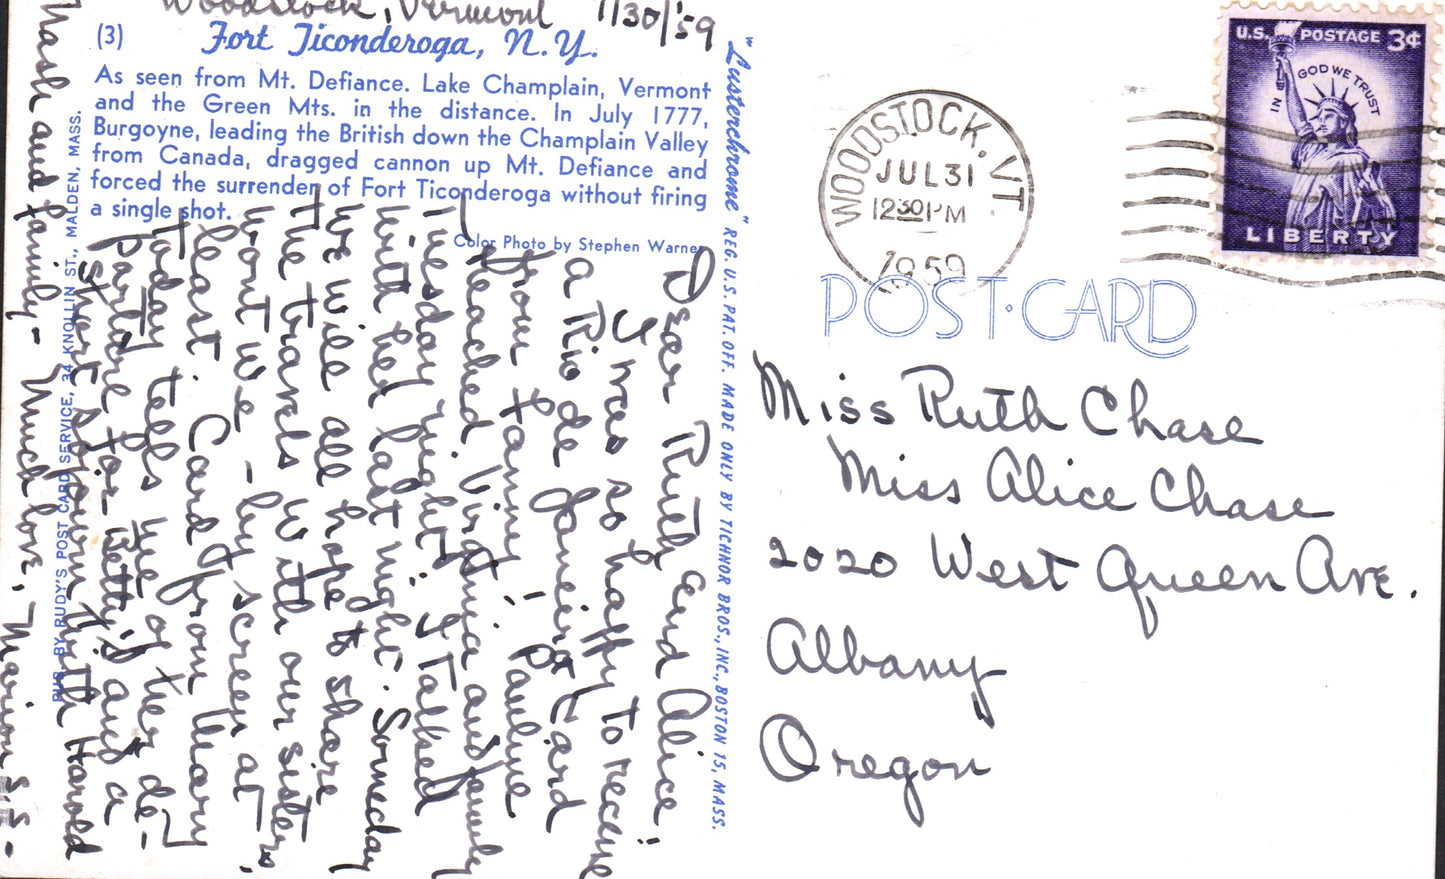 Woodstock, Vermont 7/30/'59
(3)
Fort Ticonderoga, N.Y.
As seen from Mt. Defiance. Lake Champlain, Vermont
and the Green Mts. in the distance. In July 1777,
Burgoyne, leading the British down the Champlain Valley
from Canada, dragged cannon up Mt. Defiance and
forced the surrender of Fort Ticonderoga without firing
a single shot.
Color Photo by Stephen Warner
Dear Ruth and Alice;
I was so happy to receive
a Rio de Janeiro card
from Fanny! Pauline
reached Virginia and family
Tuesday night. I talked
with her last night. Someday
we will all hope to share
the travels with our sisters,
wont we - hey screen at
least. Card from Mary
today tells me of her de-
parture for Betty's and a
short sojourn with Harold
Nash and family - Much love, Marion S.S. -
PUB. BY RUDY'S POST CARD SERVICE, 34 KNOLLIN ST., MALDEN, MASS.
"Lusterchrome" REG. U.S. PAT. OFF. MADE ONLY BY TICHNOR BROS., INC., BOSTON 15, MASS.
WOODSTOCK, VT.
JUL 31
12 30 PM
1959
U.S. POSTAGE 3¢
IN GOD WE TRUST
LIBERTY
POST·CARD
Miss Ruth Chase
Miss Alice Chase
2020 West Queen Ave.
Albany
Oregon